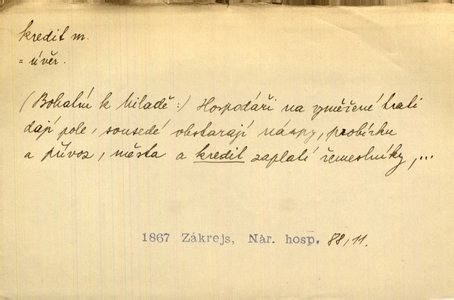 kredit m.
= úvěr.
(Bohatní k Miladě:) Hospodáři na vyměřené trati
dají pole, sousedé obstarají náspy, probírku
a přívoz, města a kredit zaplatí řemeslníky, ...
1867 Zákrejs, Nár. hosp. 88, 11.